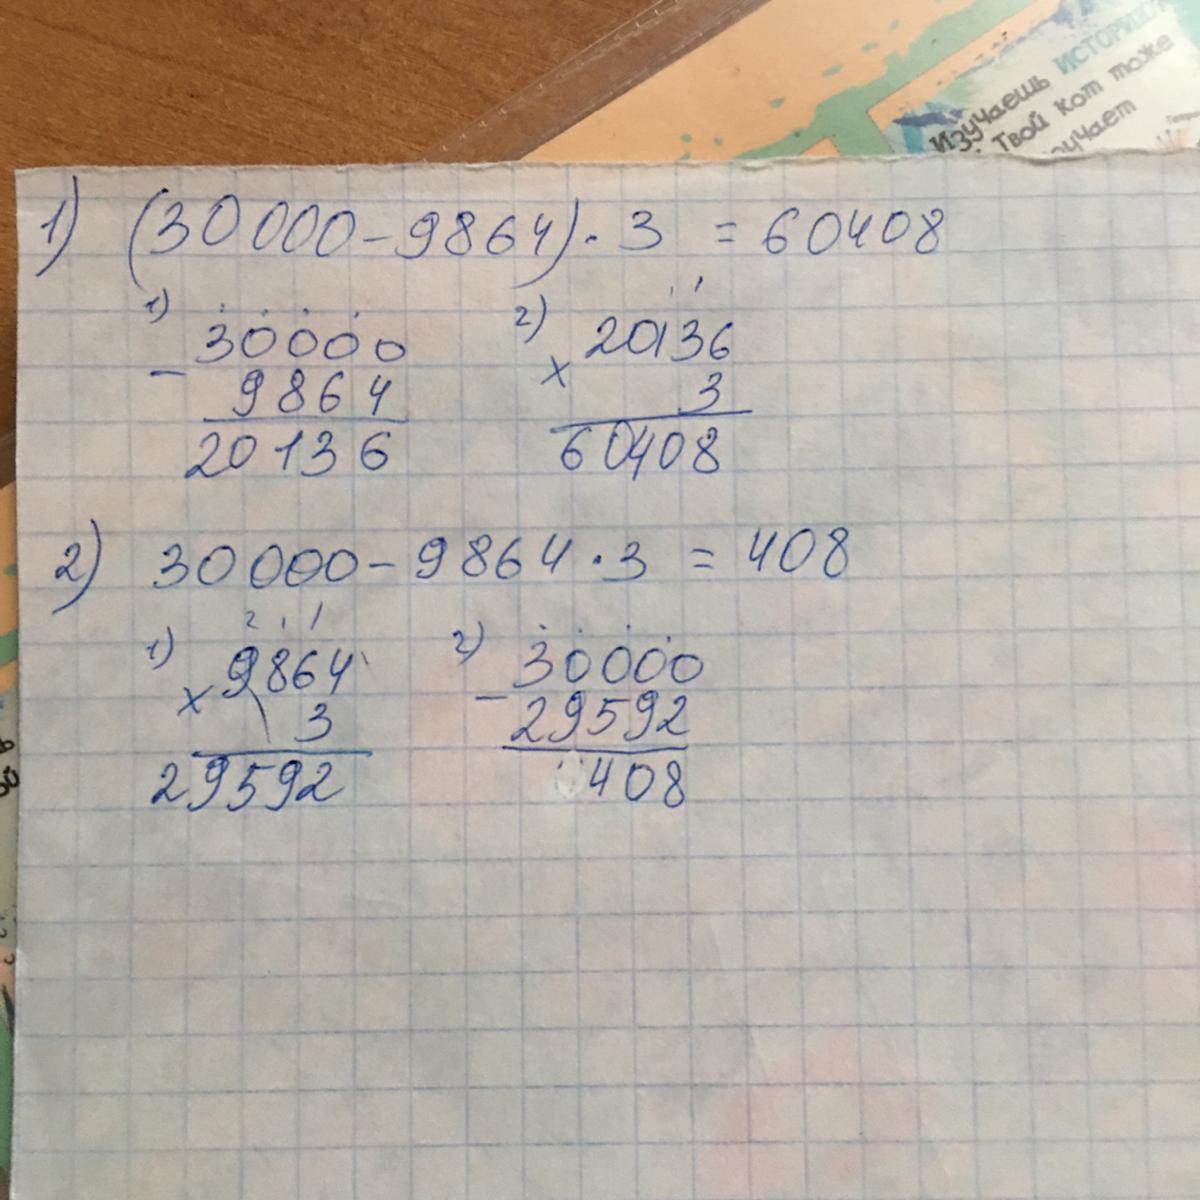 Изучаешь ИСТОРИЮ
Твой кот тоже
1) (30000-9864)·3 = 60408
1) 30000
- 9864
20136
2) 20136
× 3
60408
2) 30000-9864·3 = 408
1) 9864
× 3
29592
2) 30000
- 29592
408